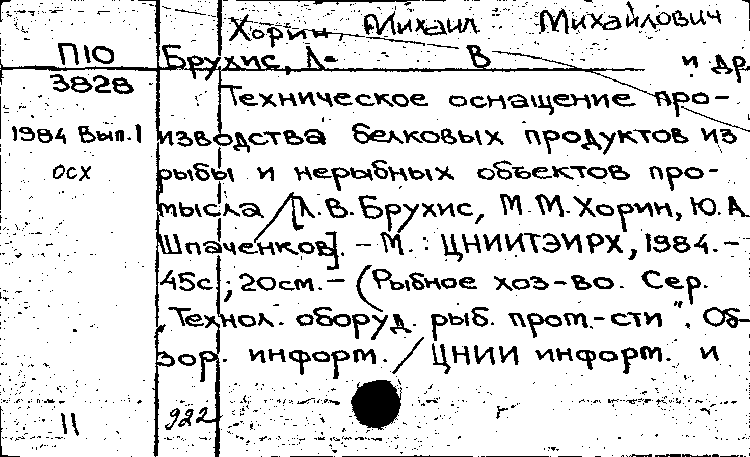 Хорин, Михаил Михайлович
П10 Брухис, Л. В и др.
3828 Техническое оснащение про-
1984 Вып.1 изводства белковых продуктов из
осх рыбы и нерыбных объектов про-
мысла / [Л.В. Брухис, М.М. Хорин, Ю.А.
Шпаченков]. - М. : ЦНИИТЭИРХ, 1984. -
45с ; 20см. - (Рыбное хоз-во. Сер.
"Технол. оборуд. рыб. пром.-сти". Об-
зор. информ. / ЦНИИ информ. и
11 922